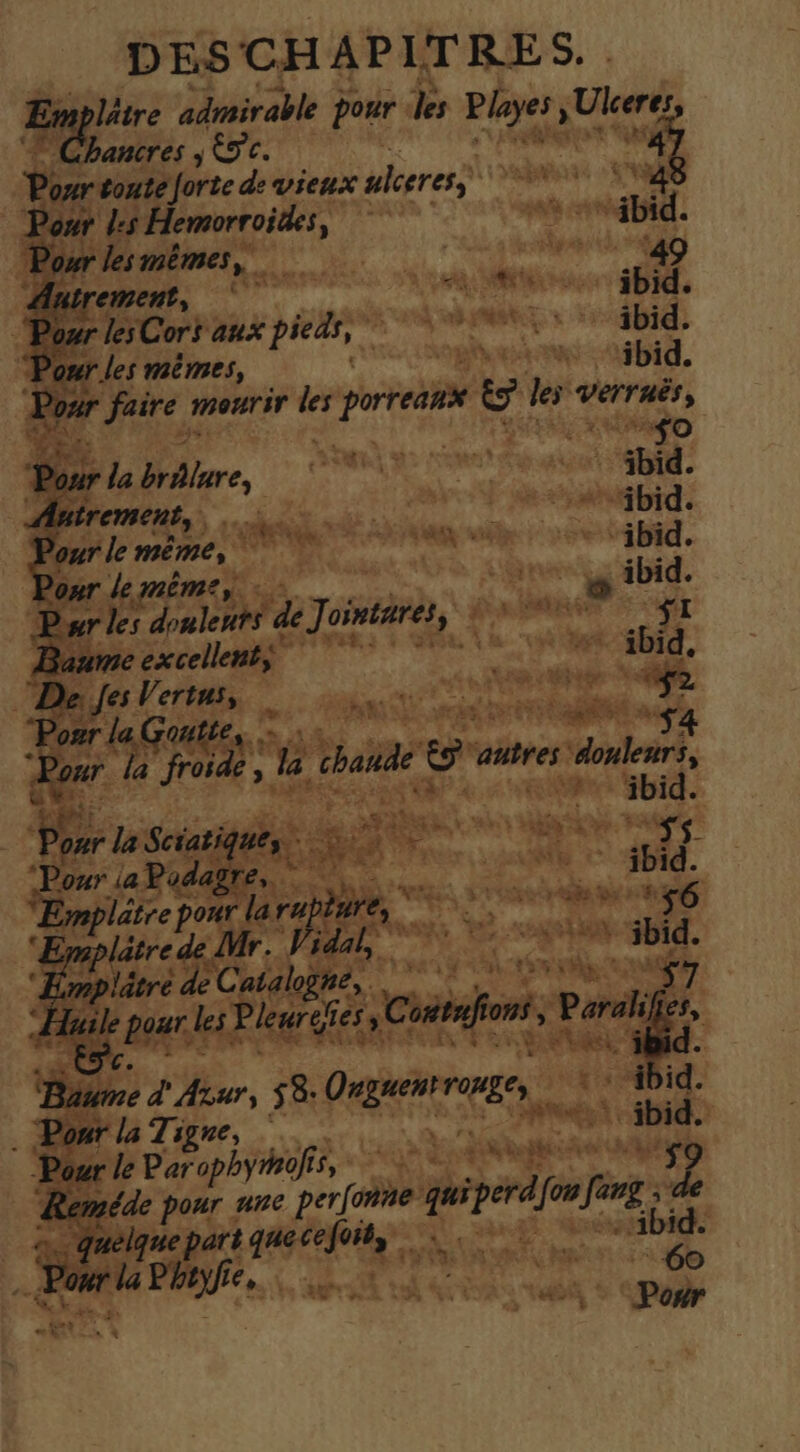 DES CHAPITRES.
Emplâtre admirable pour les Playes, Ulceres,
Chancres, &c. 47
Pour toute sorte de vieux ulceres, 48
Pour les Hemorroides, ibid.
Pour les mêmes, 49
Autrement, ibid.
Pour les Cors aux pieds, ibid.
Pour les mêmes, ibid.
Pour faire mourir les porreaux & les verruës,
50
Pour la brûlure, ibid.
Autrement, ibid.
Pour le même, ibid.
Pour le même, ibid.
Pur les douleurs de Jointures, 51
Baume excellent, ibid.
De ses Vertus, 52
Pour la Goutte, 54
Pour la froide, la chaude & autres douleurs,
ibid.
Pour la Sciatique, 55
Pour la Podagre, ibid.
Emplâtre pour la rupture, 56
Emplâtre de Mr. Vidal, ibid.
Emplâtre de Catalogne, 57
Huile pour les Pleuresies, Contusions, Paralisies,
&c. ibid.
Baume d'Azur, 58. Onguent rouge, ibid.
Pour la Tigne, ibid.
Pour le Parophymosis, 59
Reméde pour une personne qui perd son sang de
quelque part que ce soit, ibid.
Pour la Phtysie, 60
Pour